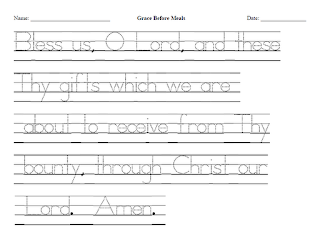 Name: ____________________ Grace Before Meals Date: ____________
Bless us, O Lord, and these
Thy gifts which we are
about to receive from Thy
bounty, through Christ our
Lord. Amen.